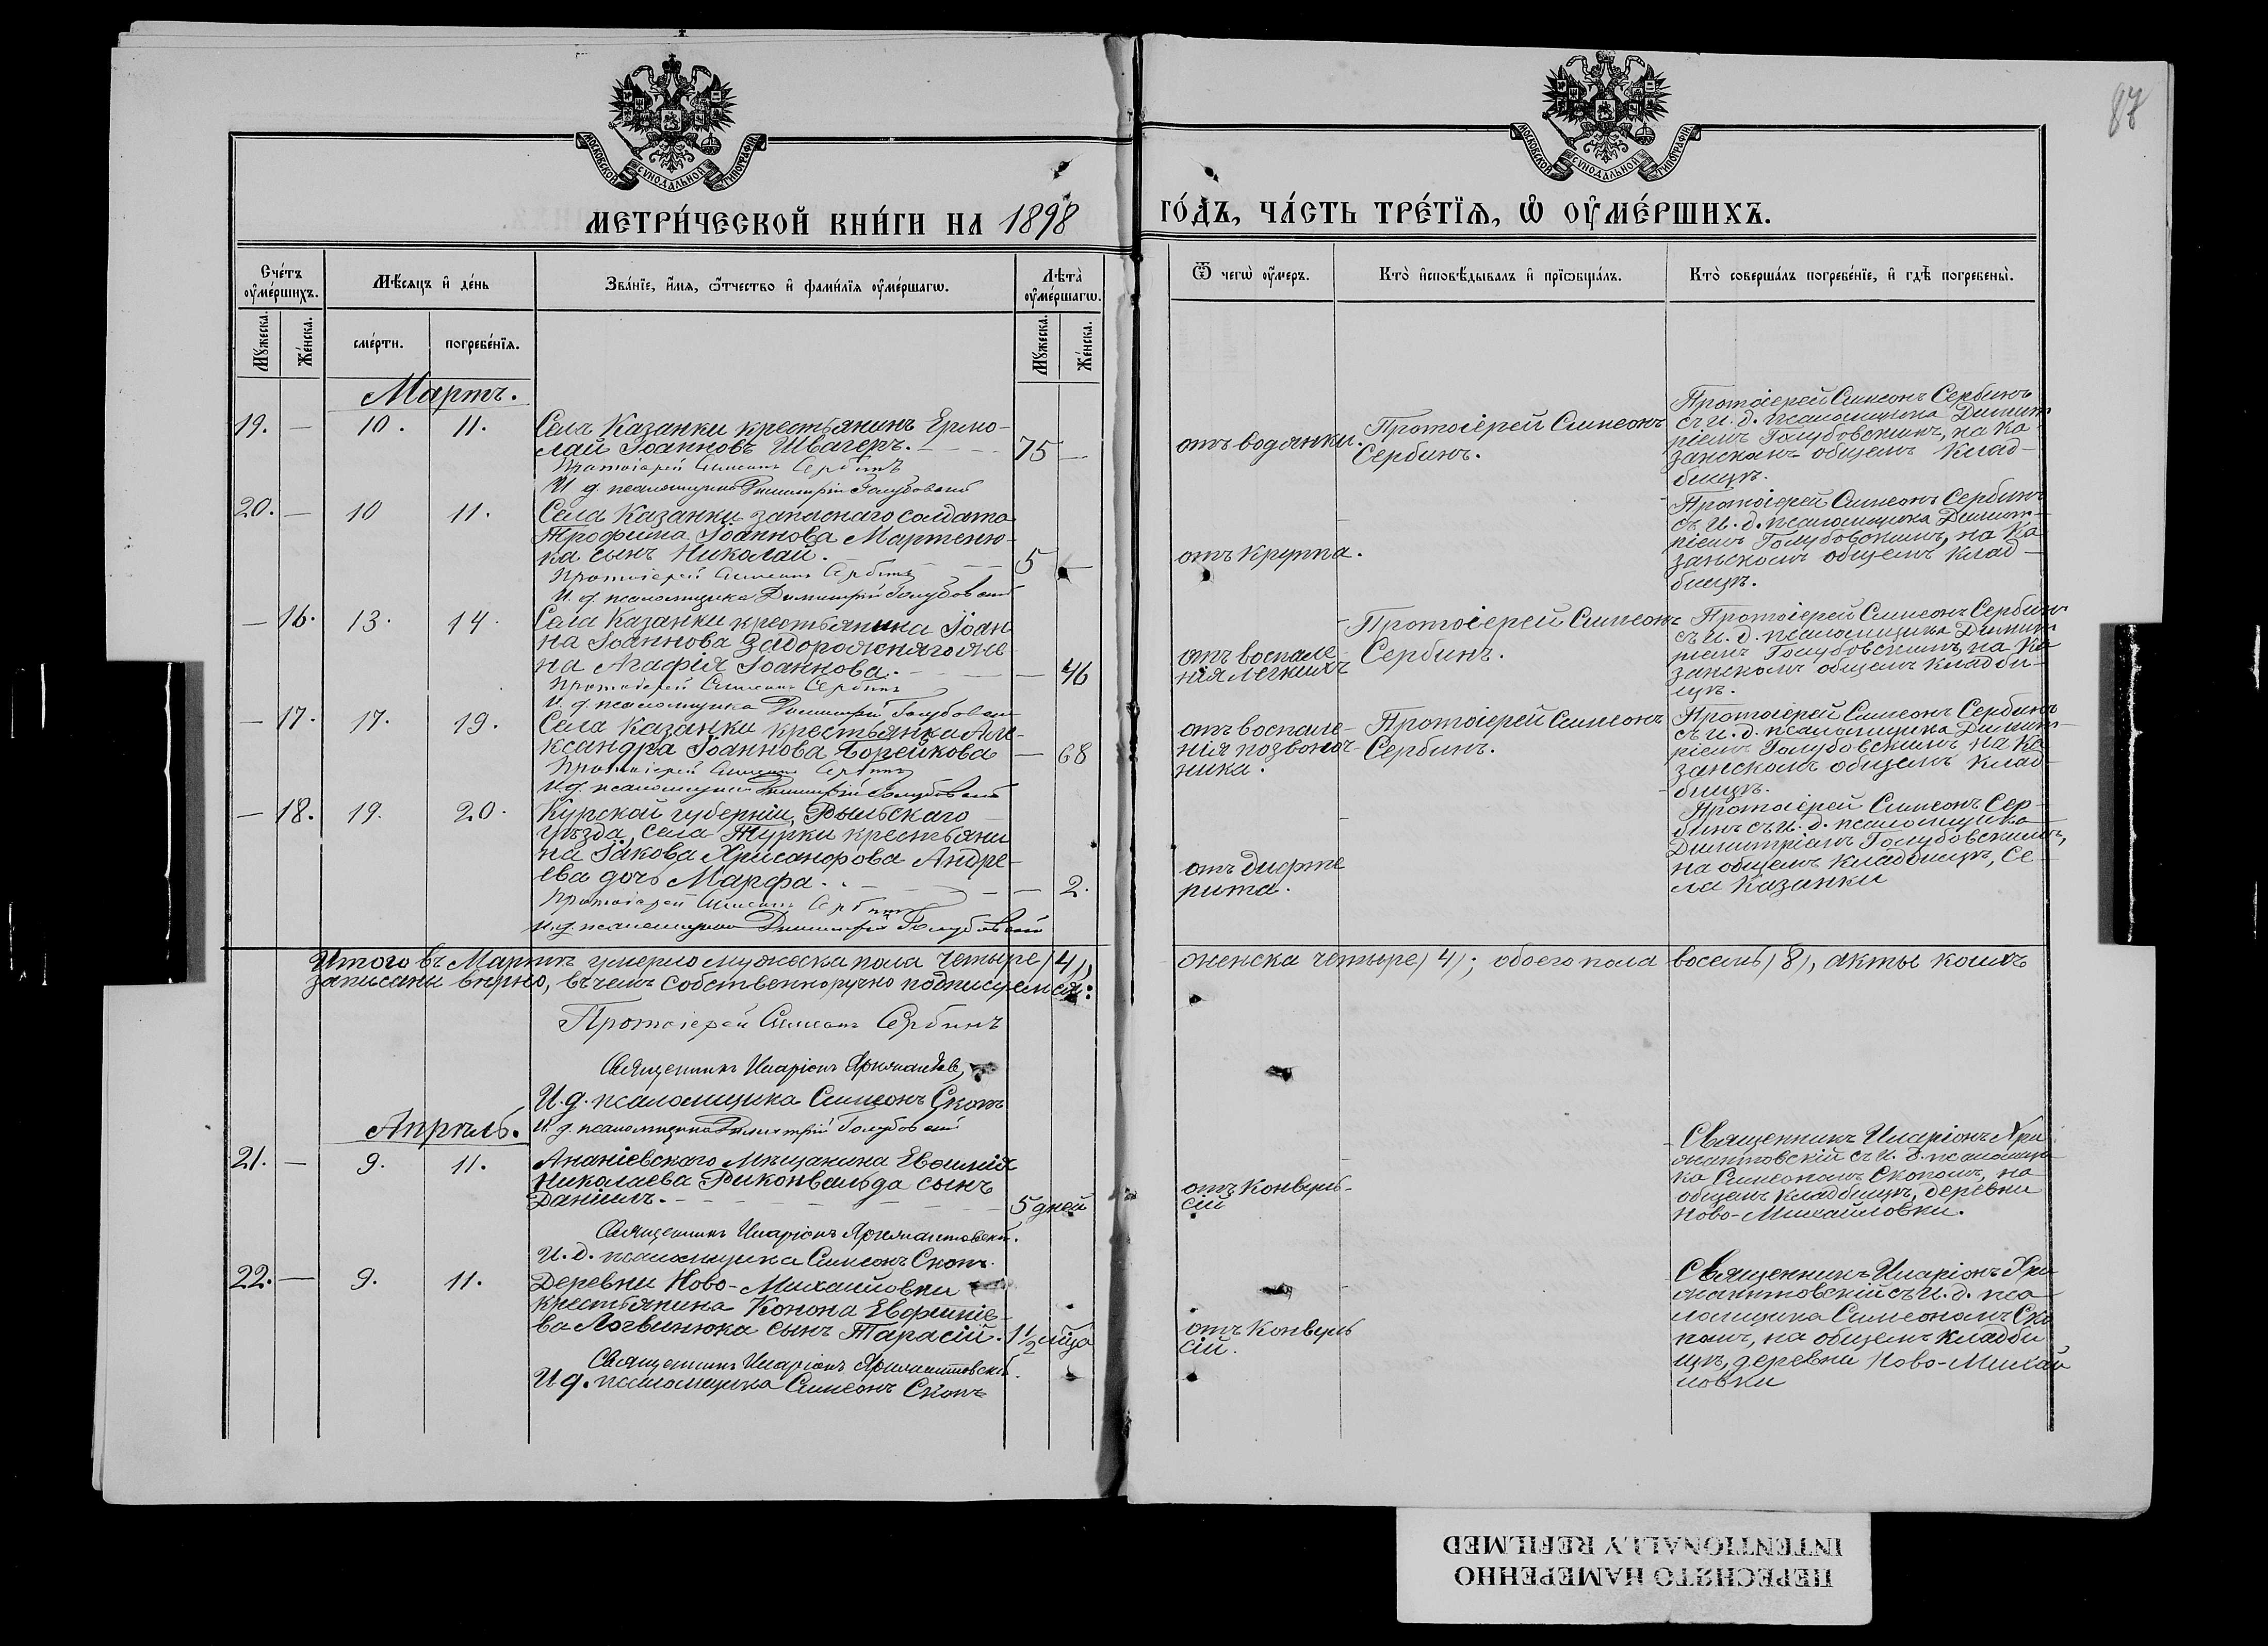 87
МОСКОВСКОЙ СѴНОДАЛЬНОЙ ТИПОГРАФІИ
МОСКОВСКОЙ СѴНОДАЛЬНОЙ ТИПОГРАФІИ
МЕТРИ́ЧЕСКОЙ КНИ́ГИ НА 1898
ГО́ДЪ, ЧА́СТЬ ТРЕ́ТЇѦ, Ѽ ОУ҆МЕ́РШИХЪ.
Сче́тъ оу҆ме́ршихъ.
Мѣ́сѧцъ и҆ де́нь
Зва́нїе, и҆́мѧ, ѻ҆́тчество и҆ фами́лїѧ оу҆ме́ршагѡ.
Лѣ́та оу҆ме́ршагѡ.
Ѿ чегѡ̀ оу҆́меръ.
Кто̀ и҆сповѣ́дывалъ и҆ прїѡбща́лъ.
Кто̀ соверша́лъ погребе́нїе, и҆ гдѣ̀ погребены̀.
Мꙋ́жеска.
Же́нска.
сме́рти.
погребе́нїѧ.
Мꙋ́жеска.
Же́нска.
Мартъ.
19. — 10. 11.
Села Казанки крестьянинъ Ермо-
лай Іоанновъ Швагеръ. 75 —
Протоіерей Симеонъ Сербинъ
И д. псаломщика Димитрій Голубовскій
отъ водянки.
Протоіерей Симеонъ
Сербинъ.
Протоіерей Симеонъ Сербинъ
съ И. д. псаломщика Димит
ріемъ Голубовскимъ, на Ка
занскомъ общемъ клад-
бищѣ.
20. — 10 11.
Села Казанки запаснаго солдата
Трофима Іоаннова Мартеню-
ка сынъ Николай. 5 —
Протоіерей Симеонъ Сербинъ
И. д. псаломщика Димитрій Голубовскій
отъ Круппа.
Протоіерей Симеонъ Сербинъ
съ И. д. псаломщика Димит-
ріемъ Голубовскимъ, на Ка
занскомъ общемъ клад-
бищѣ.
— 16. 13. 14.
Села Казанки крестьянина Іоан
на Іоаннова Задорожняго же
на Агафія Іоаннова. — 46
Протоіерей Симеонъ Сербинъ
И. д. псаломщика Димитрій Голубовскій
отъ воспале-
нія легкихъ
Протоіерей Симеонъ
Сербинъ.
Протоіерей Симеонъ Сербинъ
съ И. д. псаломщика Димит
ріемъ Голубовскимъ, на Ка
занскомъ общемъ кладби-
щѣ.
— 17. 17. 19.
Села Казанки крестьянка Але-
ксандра Іоаннова Борейкова — 68
Протоіерей Симеонъ Сербинъ
И д. псаломщика Димитрій Голубовскій
отъ воспале-
нія позвоноч-
ника.
Протоіерей Симеонъ
Сербинъ.
Протоіерей Симеонъ Сербинъ
съ И. д. псаломщика Димит-
ріемъ Голубовскимъ на Ка
занскомъ общемъ клад-
бищѣ.
— 18. 19. 20.
Курской губерніи, Рыльскаго
уѣзда, села Турки крестьяни
на Іакова Хрисанфова Андре-
ева дочь Марфа. — 2.
Протоіерей Симеонъ Сербинъ
И. д. псаломщика Димитрій Голубовскій
отъ дифте
рита.
Протоіерей Симеонъ Сер-
бинъ съ И. д. псаломщика
Димитріемъ Голубовскимъ,
на общемъ кладбищѣ, Се-
ла Казанки
Итого въ Мартѣ умерло мужеска пола четыре (4),
женска четыре (4); обоего пола восемь (8), акты коихъ
записаны вѣрно, въ чемъ собственноручно подписуемся:
Протоіерей Симеонъ Сербинъ
Священникъ Иларіонъ
И. д. псаломщика Симеонъ Скопъ
И. д. псаломщика Димитрій Голубовскій
Апрѣль.
21. — 9. 11.
Ананіевскаго мѣщанина Евфимія
Николаева Риконвальда сынъ
Даніилъ. 5 дней
Священникъ Иларіонъ
И. д. псаломщика Симеонъ Скопъ.
отъ Конвуль-
сій
Священникъ Иларіонъ
съ И. д. псаломщи
ка Симеономъ Скопомъ, на
общемъ кладбищѣ, деревни
Ново-Михайловки.
22. — 9. 11.
Деревни Ново-Михайловки
крестьянина Конона Евфиміе-
ва Логвинюка сынъ Тарасій. 1 1/2 мѣца
Священникъ Иларіонъ
И д. псаломщика Симеонъ Скопъ
отъ Конвуль
сій.
Священникъ Иларіонъ
съ И. д. пса-
ломщика Симеономъ Ско
помъ, на общемъ кладби
щѣ, деревни Ново-Михай
ловки
ПЕРЕСНЯТО НАМЕРЕННО
INTENTIONALLY REFILMED